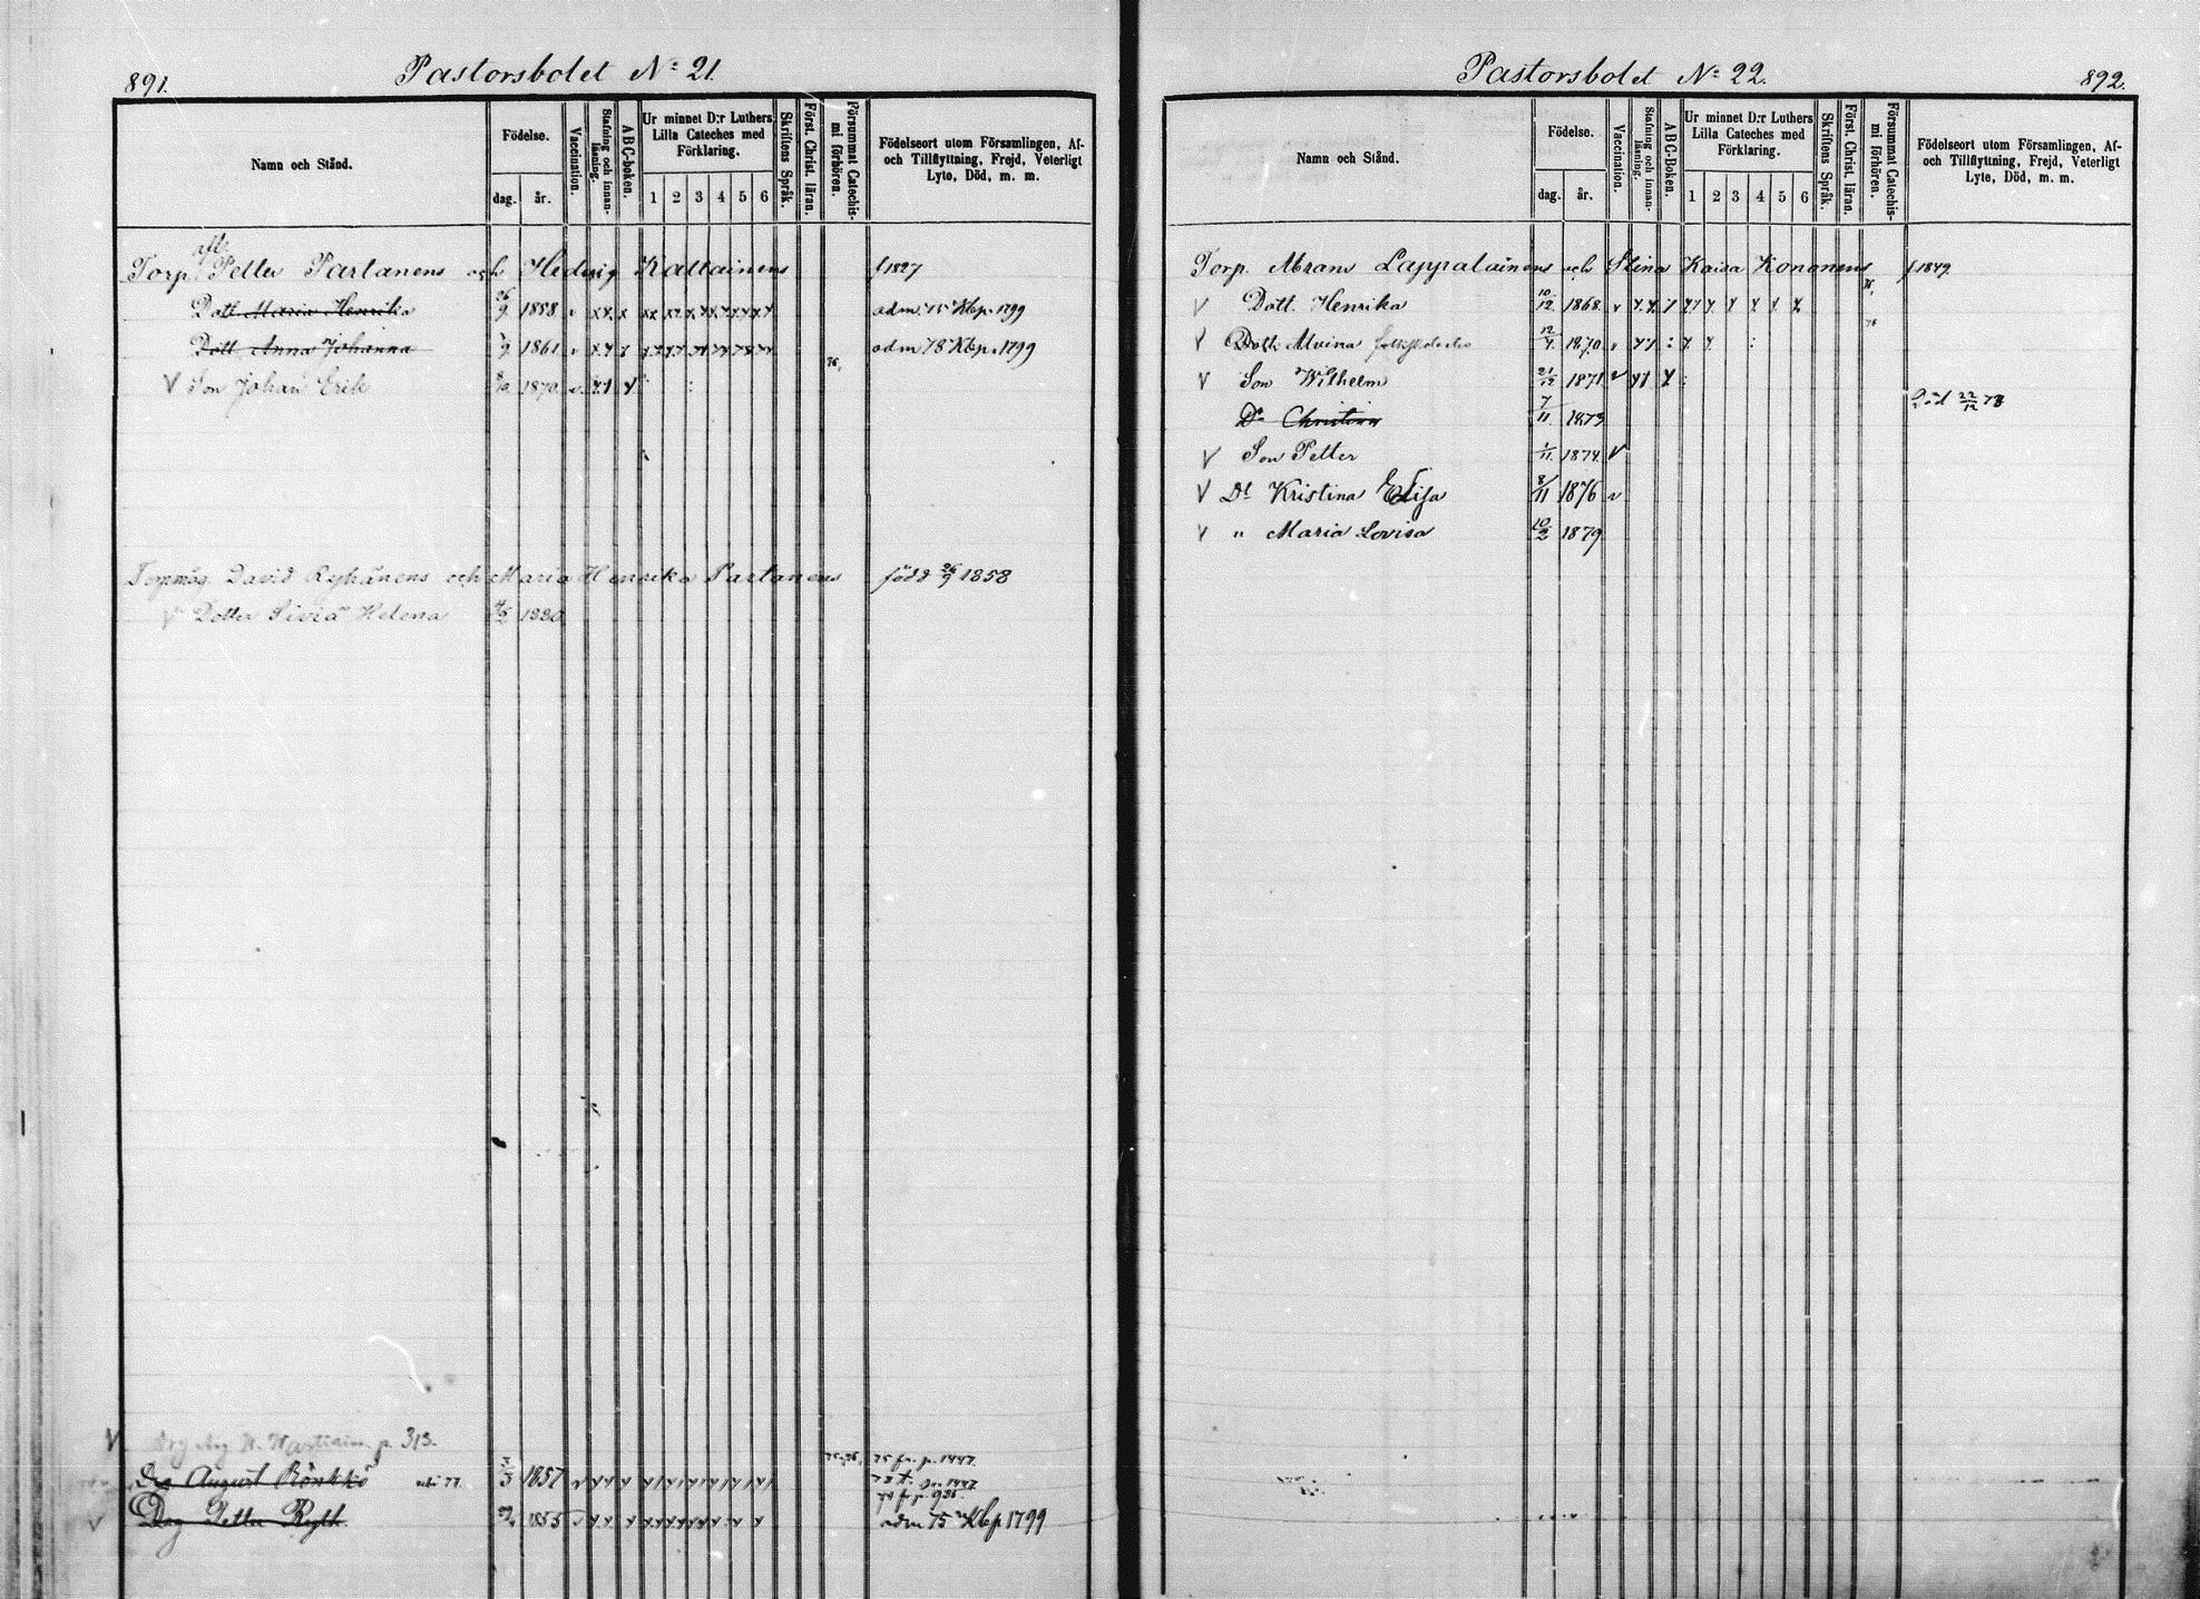 891.
Pastorsbolet No 21.
Namn och Stånd.
Födelse.
dag.
år.
Vaccination.
Stafning och innan-läsning.
ABC-boken.
Ur minnet D:r Luthers Lilla Cateches med Förklaring.
1 2 3 4 5 6
Skriftens Språk.
Först. Christ. läran.
Försummat Catechis-mi förhören.
Födelseort utom Församlingen, Af- och Tillflyttning, Frejd, Veterligt Lyte, Död, m. m.
Torp. afl. Petter Partanens och Hedvig Kattainens f 1827
Dott. Maria Henrika 26/9 1858 adm. 75 Kbp. 1799
Dott Anna Johanna 1861 adm 78 Kbp. 1799
V Son Johan Erik 1870 76,
David Ryhänens och Maria Henrika Partanens född 26/9 1858
V Dotter Helena 1880
V p. 313.
Drg August Rönkkö 3/3 1857 75.76, 75 fr. p. 1447.
V Drg Petter 1855 adm 75 Kbp 1799
Pastorsbolet No 22.
892.
Namn och Stånd.
Födelse.
dag.
år.
Vaccination.
Stafning och innan-läsning.
ABC-Boken.
Ur minnet D:r Luthers Lilla Cateches med Förklaring.
1 2 3 4 5 6
Skriftens Språk.
Först. Christ. läran.
Försummat Catechis-mi förhören.
Födelseort utom Församlingen, Af- och Tillflyttning, Frejd, Veterligt Lyte, Död, m. m.
Torp. Abram Lappalainens och Stina Kaisa Kononens f 1849.
V Dott. Henrika 10/12 1868. 76,
V Dott. Alvina 12/4 1870. 76
V Son Wilhelm 21/12 1871 V
Dr Christina 7/11 1873 Död 22/12 73
V Son Petter 1/11 1874. V
V Dr Kristina Elisa 8/11 1876 v
V " Maria Lovisa 10/2 1879